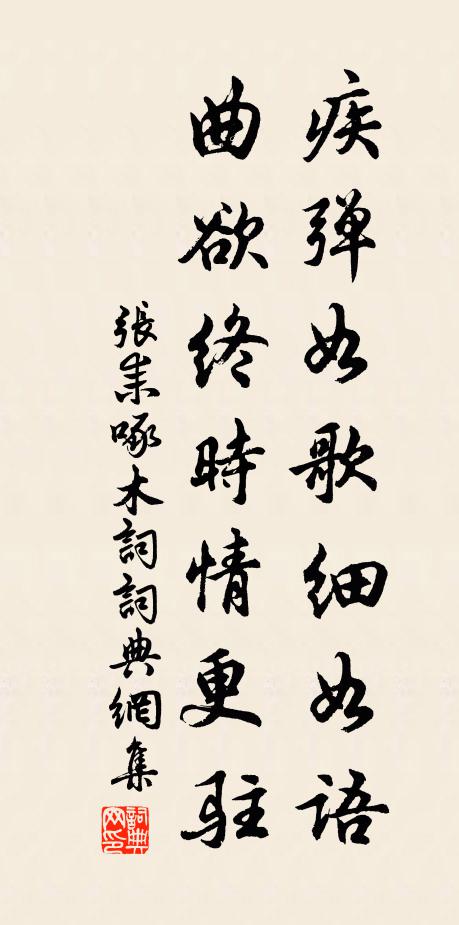 疾弹如歌细如語
曲欲终時情更駐
張耒啄木詞詞典網集
詞典网印